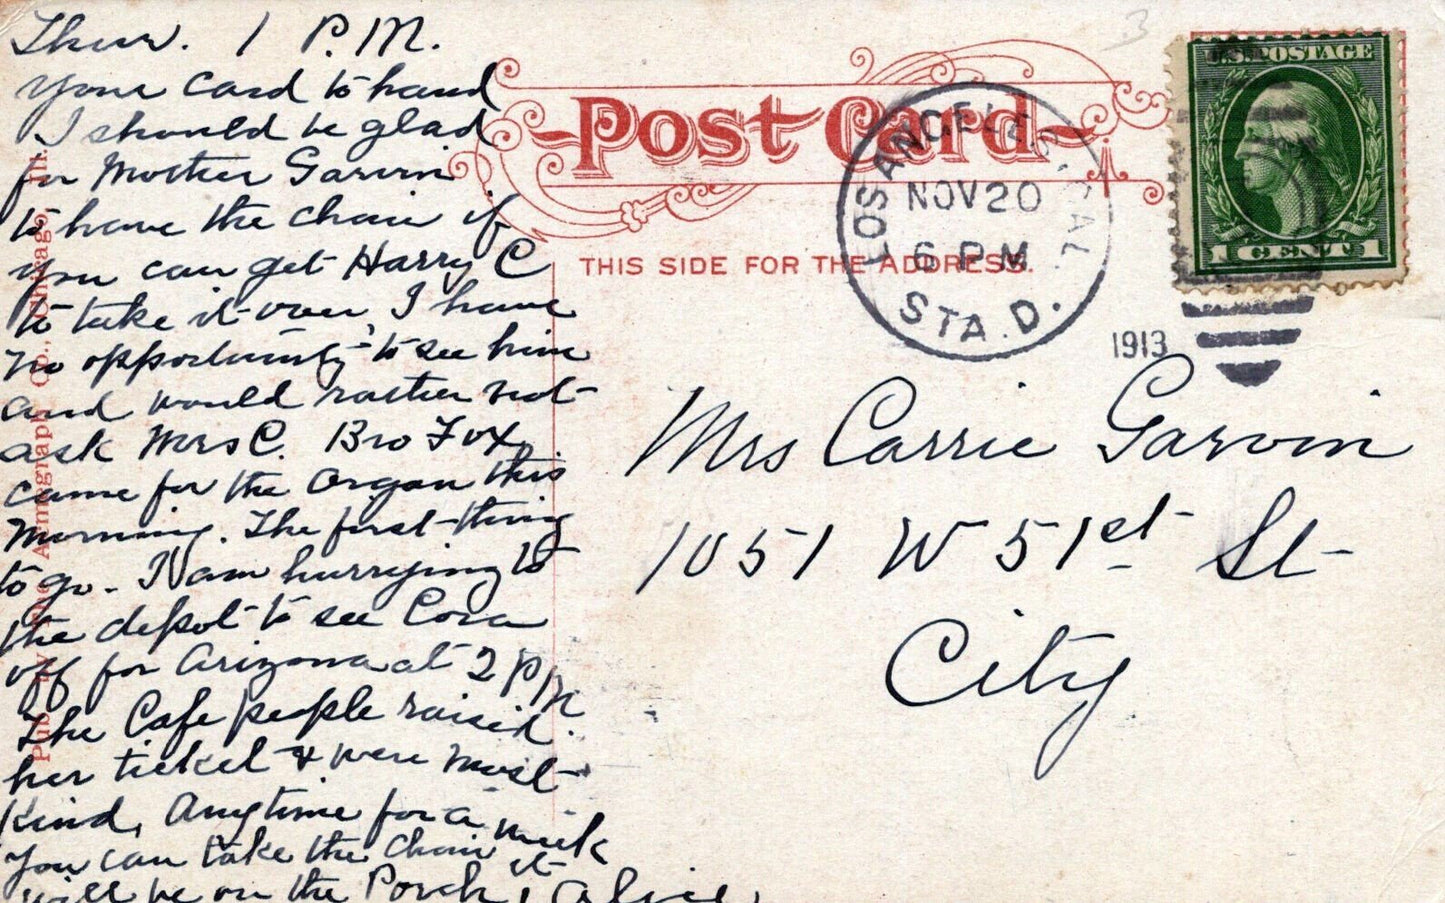 Thur. 1 P.M.
Your card to hand
I should be glad
for Mother Garvin
to have the chair if
you can get Harry C
to take it over, I have
no opportunity to see him
and would rather not
ask Mrs C. Bro Fox
came for the organ this
morning. The first thing
to go. I am hurrying to
the depot to see Cora
off for Arizona at 2 PM
The Cafe people raised
her ticket & were most
kind, Anytime for a week
you can take the chair it
will be on the Porch, Alvie
Post Card
THIS SIDE FOR THE ADDRESS.
LOS ANGELES, CAL.
NOV 20
6 PM
STA. D.
1913
U.S. POSTAGE
1 CENT 1
Mrs Carrie Garvin
1051 W 51st St
City
Pub. by The Armograph Co., Chicago, Ill.
3